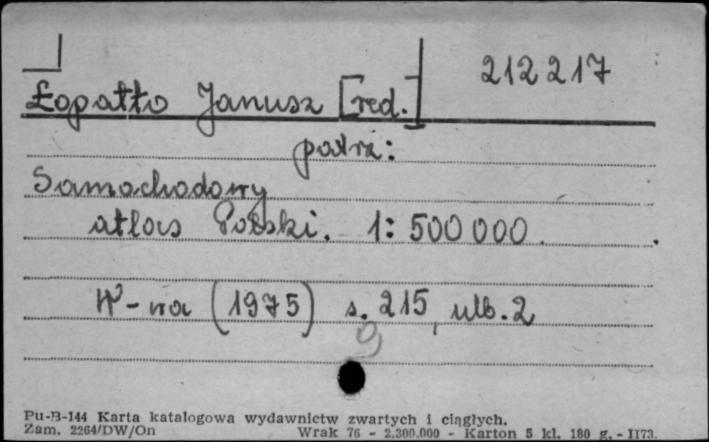 212217
Łopatto Janusz [red.]
patrz:
Samochodowy
atlas Polski. 1:500 000.
W-wa (1975) s. 215, ulb. 2
Pu-B-144 Karta katalogowa wydawnictw zwartych i ciągłych.
Zam. 2264/DW/On Wrak 76 - 2.300.000 - Karton 5 kl. 180 g. - II73.